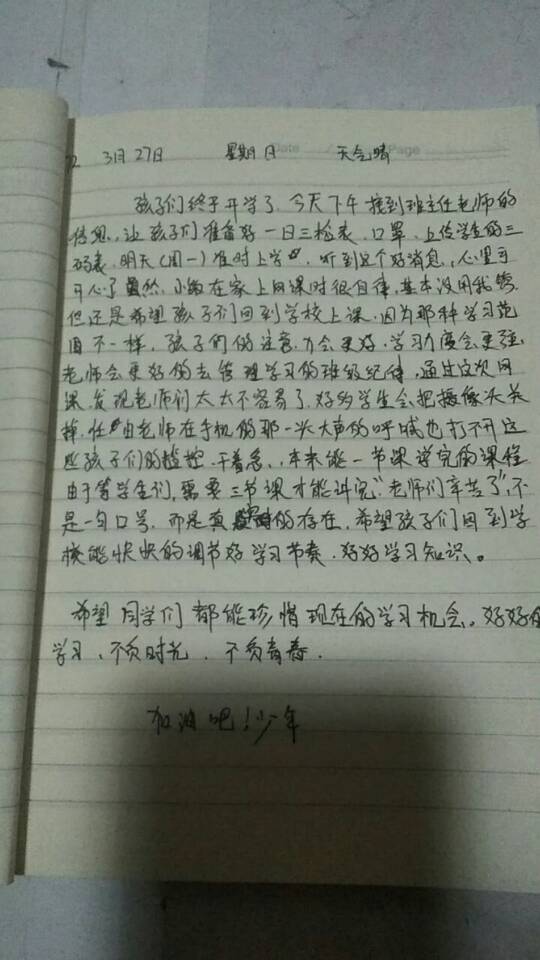 2 3月27日 星期日 Date 天气晴 Page
孩子们终于开学了，今天下午接到班主任老师的
信息，让孩子们准备好一日三检表，口罩，上传学生的三
码表，明天(周一)准时上学，听到这个好消息，心里可
开心了虽然，小敏在家上网课时很自律，基本没用我管
但还是希望孩子们回到学校上课，因为那种学习范
围不一样，孩子们的注意力会更好，学习力度会更强
老师会更好的去管理学习的班级纪律，通过这次网
课，发现老师们太太不容易了，好的学生会把摄像头关
掉，任由老师在手机的那一头大声的呼喊也打不开这
些孩子们的监控，干着急，本来能一节课讲完的课程
由于等学生们，需要三节课才能讲完"老师们辛苦了"，不
是一句口号，而是真的存在，希望孩子们回到学
校能快快的调节好学习节奏，好好学习知识。
希望同学们都能珍惜现在的学习机会。好好的
学习，不负时光，不负青春．
加油吧！少年